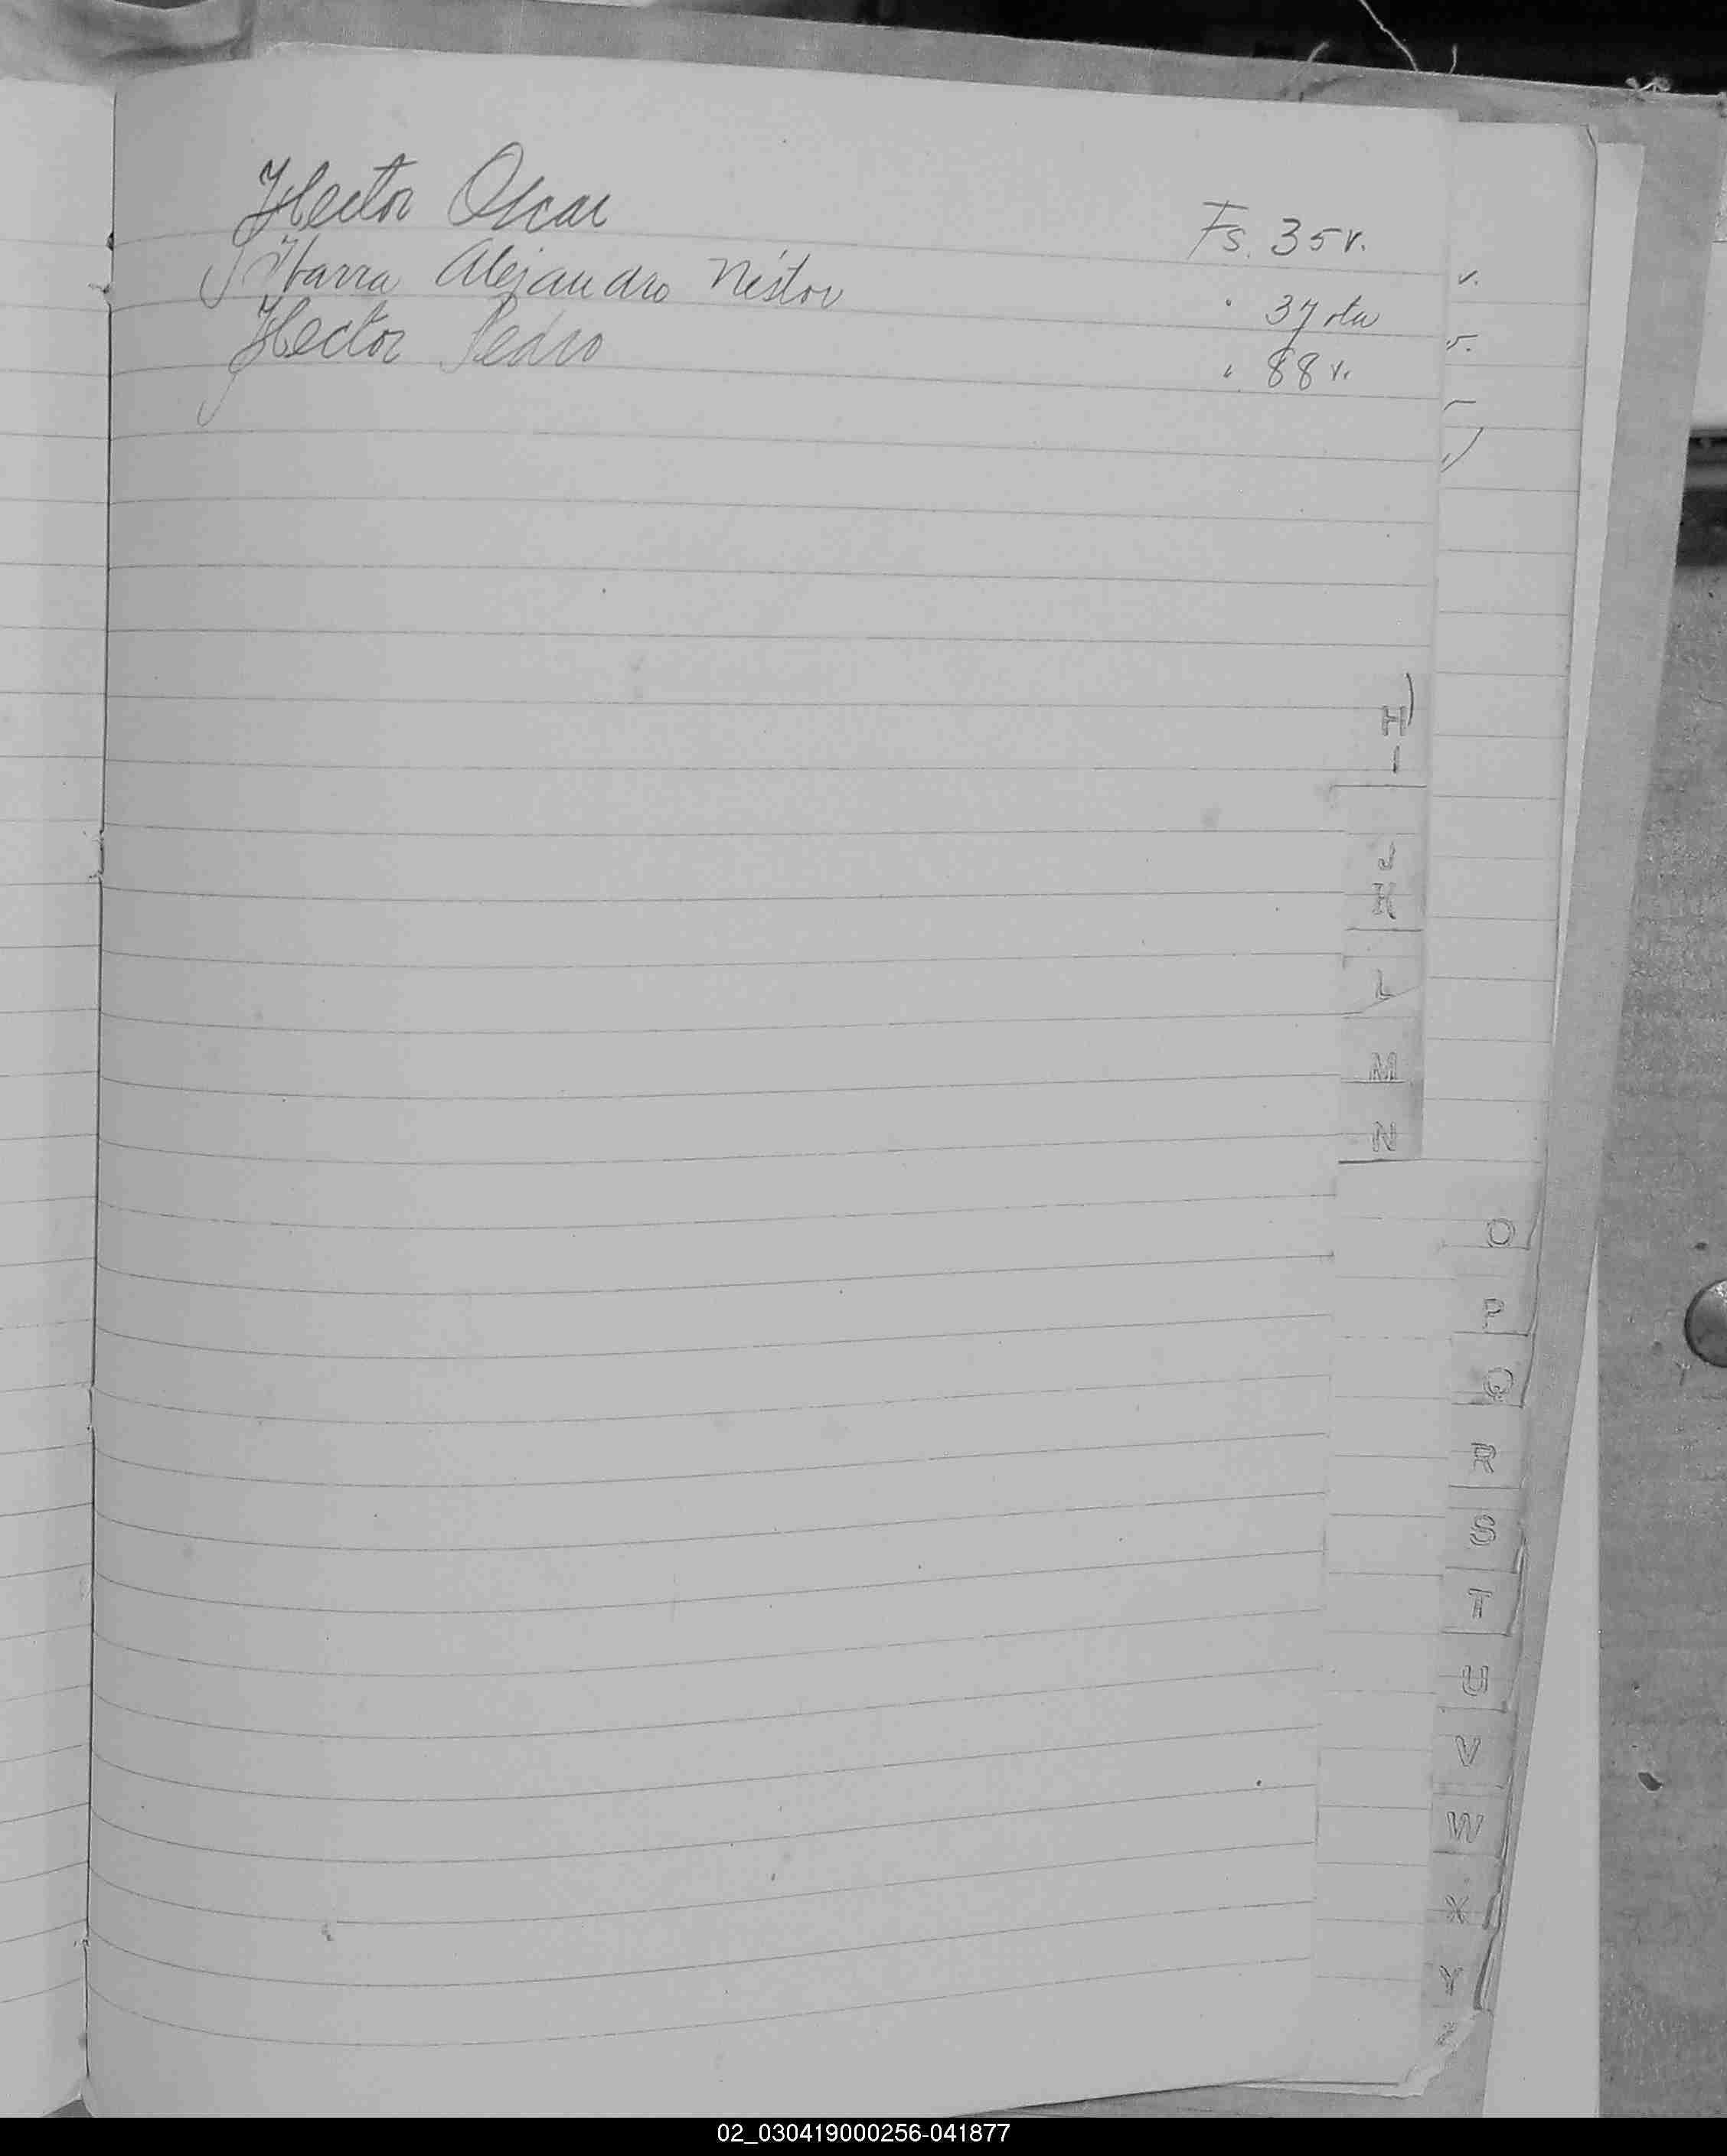 Hector Oscar Fs. 35 v.
Ibarra Alejandro Nestor " 37 vta
Hector Pedro " 88 v.
H
I
J
K
L
M
N
O
P
Q
R
S
T
U
V
W
X
Y
Z
02_030419000256-041877